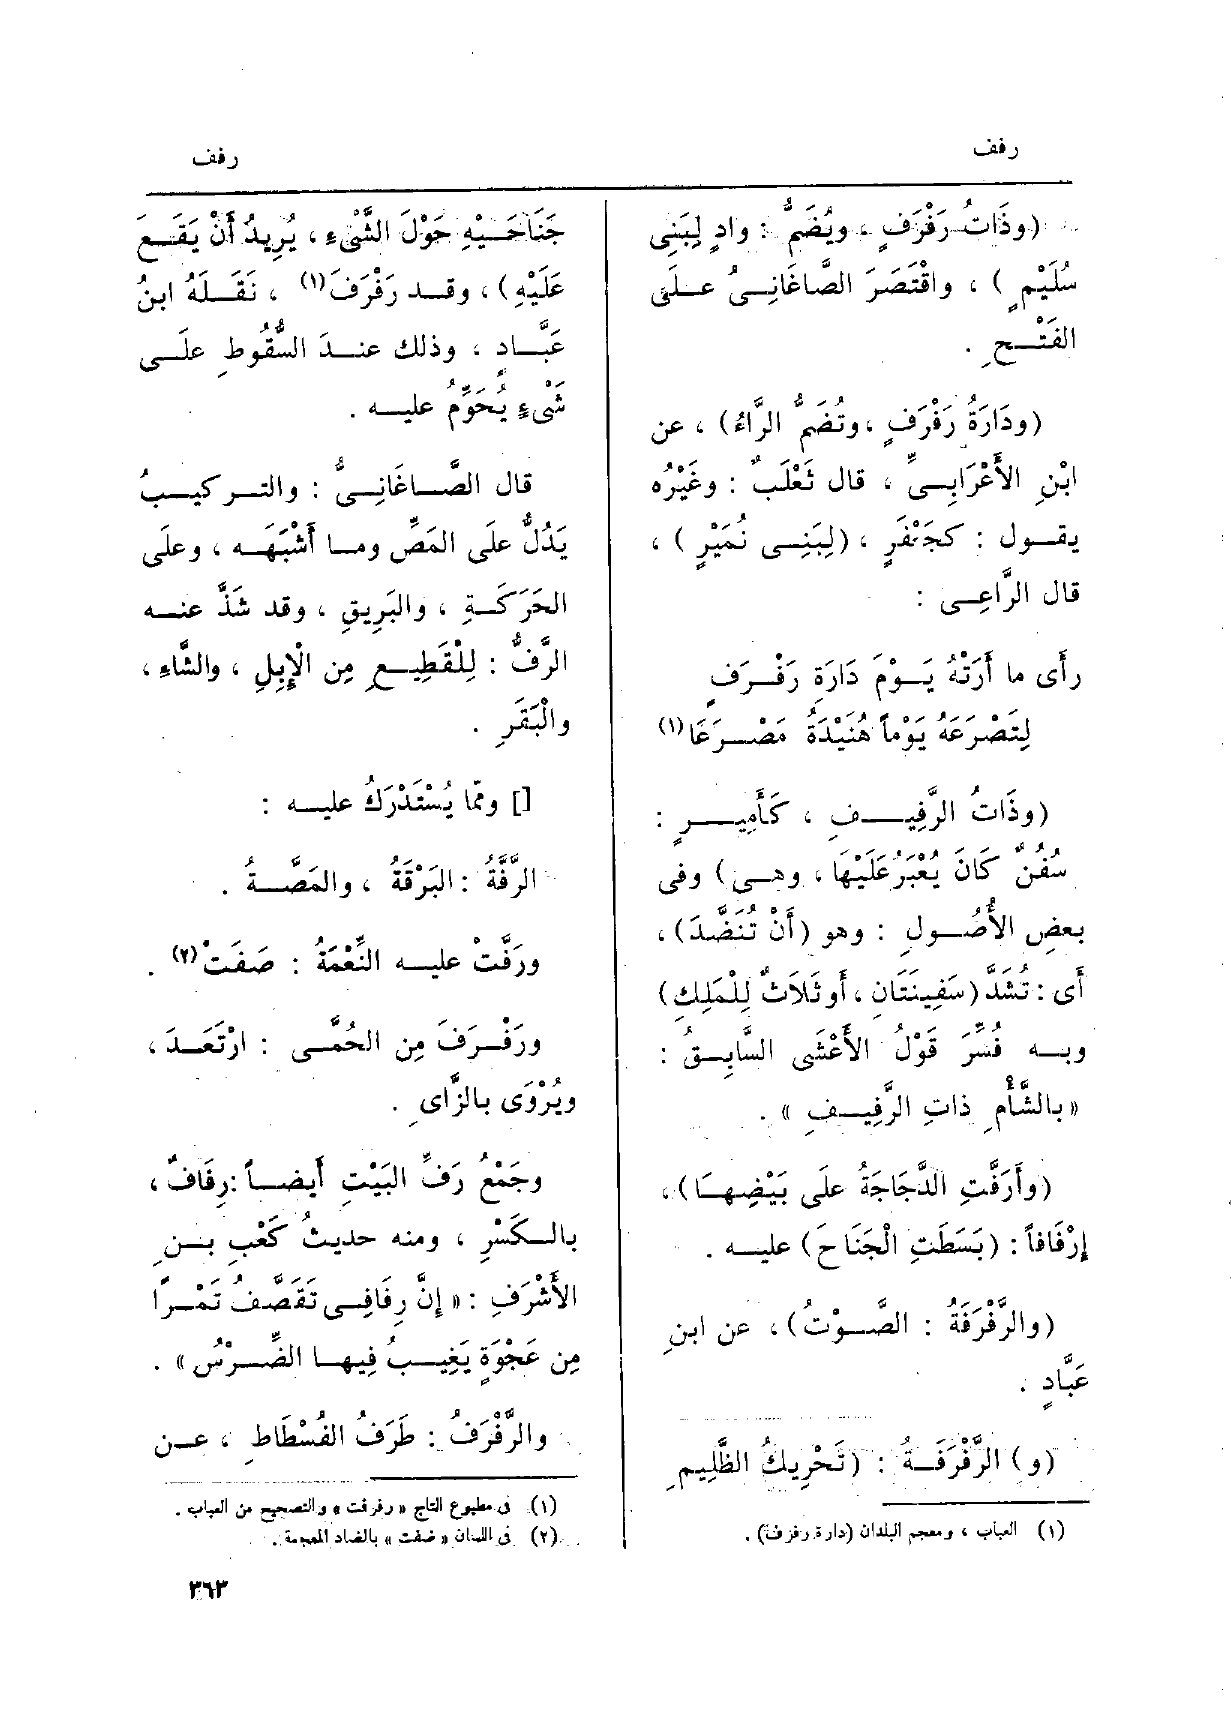 رفف
رفف
(وذَاتُ رَفْرَفٍ ، ويُضَمُّ : وادٍ لِبَنِى
سُلَيْمٍ ) ، واقْتَصَرَ الصَّاغَانِىُّ علَى
الفَتْحِ .
(ودَارَةُ رَفْرَفٍ ، وتُضَمُّ الرَّاءُ) ، عن
ابْنِ الأَعْرَابِىِّ ، قال ثَعْلَبٌ : وغَيْرُه
يقول : كجَعْفَرٍ ، (لِبَنِى نُمَيْرٍ ) ،
قال الرَّاعِى :
رأَى ما أَرَتْهُ يَوْمَ دَارَةِ رَفْرَفٍ
لِتَصْرَعَهُ يَوْماً هُنَيْدَةُ مَصْرَعَا (١)
(وذَاتُ الرَّفِيفِ ، كَأَمِيرٍ :
سُفُنٌ كَانَ يُعْبَرُ عَلَيْهَا ، وهى) وفى
بعضِ الأُصُولِ : وهو (أَنْ تُنَضَّدَ) ،
أَى : تُشَدَّ (سَفِينَتَان ، أَو ثَلَاثٌ لِلْمَلِكِ)
وبه فُسِّرَ قَوْلُ الأَعْشَى السَّابِقُ :
« بالشَّأْمِ ذاتِ الرَّفِيفِ » .
(وأَرَفَّتِ الدَّجَاجَةُ علَى بَيْضِهَا) ،
إِرْفَافاً : (بَسَطَتِ الْجَنَاحَ) عليه .
(والرَّفْرَفَةُ : الصَّوْتُ) ، عن ابنِ
عَبَّادٍ .
(و) الرَّفْرَفَةُ : (تَحْرِيكُ الظَّلِيمِ
(١) العباب ، ومعجم البلدان (دارة رفرف) .
جَنَاحَيْهِ حَوْلَ الشَّىْءِ ، يُرِيدُ أَنْ يَقَعَ
عَلَيْهِ ) ، وقد رَفْرَفَ (١) ، نَقَلَهُ ابنُ
عَبَّادٍ ، وذلك عندَ السُّقُوطِ علَى
شَىْءٍ يُحَوِّمُ عليه .
قال الصَّاغَانِىُّ : والتركيبُ
يَدُلُّ علَى المَصِّ وما أَشْبَهَه ، وعلَى
الحَرَكَةِ ، والبَرِيقِ ، وقد شَذَّ عنه
الرَّفُّ : لِلْقَطِيعِ مِن الْإِبِلِ ، والشَّاءِ ،
والْبَقَرِ .
[] وممّا يُسْتَدْرَكُ عليه :
الرَّفَّةُ : البَرْقَةُ ، والمَصَّةُ .
ورَفَّتْ عليه النِّعْمَةُ : صَفَتْ (٢) .
ورَفْرَفَ مِن الحُمَّى : ارْتَعَدَ ،
ويُرْوَى بالزَّاىِ .
وجَمْعُ رَفِّ البَيْتِ أَيضاً : رِفَافٌ ،
بالكَسْرِ ، ومنه حديثُ كَعْبِ بنِ
الأَشْرَفِ : « إِنَّ رِفَافِى تَقَصَّفُ تَمْرًا
مِن عَجْوَةٍ يَغِيبُ فِيها الضِّرْسُ » .
والرَّفْرَفُ : طَرَفُ الفُسْطَاطِ ، عن
(١) فى مطبوع التاج « رفرفت » والتصحيح من العباب .
(٢) فى اللسان « ضفت » بالضاد المعجمة .
٣٦٣